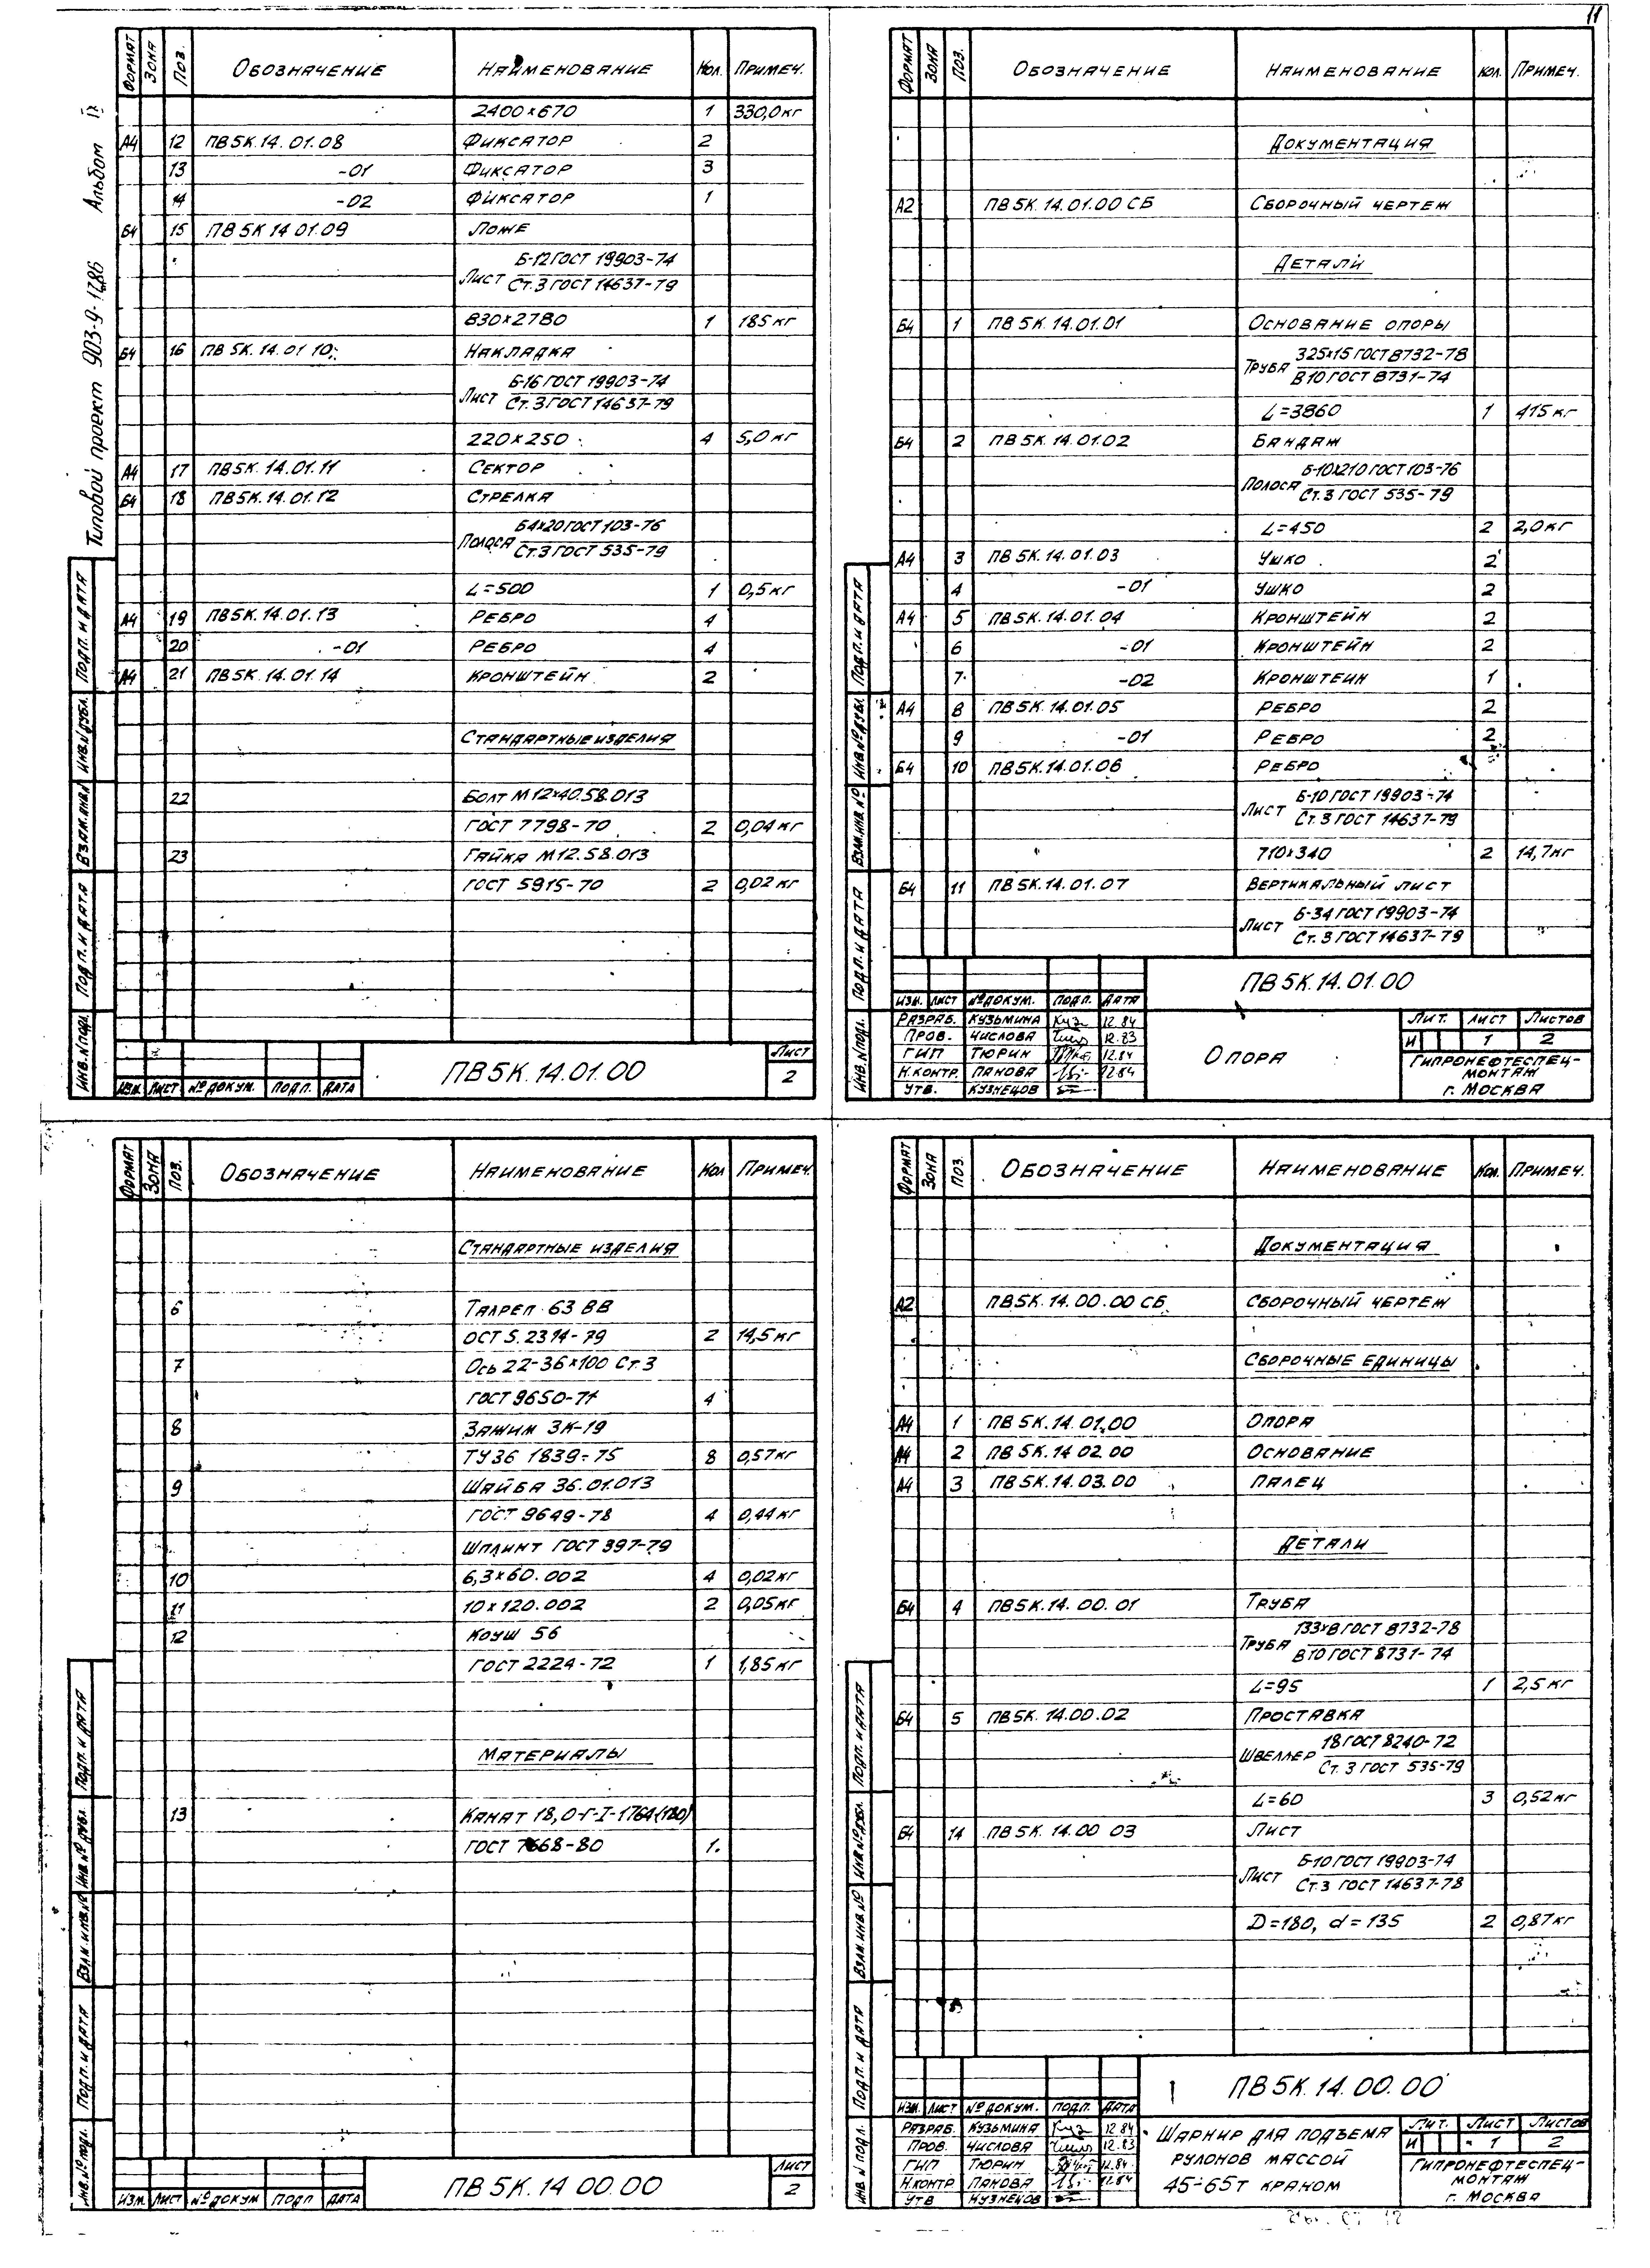 11
Типовой проект 903-9-12.86 Альбом II
Формат Зона Поз. Обозначение Наименование Кол. Примеч.
2400×670 1 330,0кг
А4 12 ПВ5К.14.01.08 Фиксатор 2
13 -01 Фиксатор 3
14 -02 Фиксатор 1
Б4 15 ПВ5К 14.01.09 Ложе
Б-12 ГОСТ 19903-74
Лист Ст.3 ГОСТ 14637-79
830×2780 1 185кг
Б4 16 ПВ5К.14.01 10 Накладка
Б-16 ГОСТ 19903-74
Лист Ст.3 ГОСТ 14637-79
220×250 4 5,0кг
А4 17 ПВ5К.14.01.11 Сектор
Б4 18 ПВ5К.14.01.12 Стрелка
Б4×20 ГОСТ 103-76
Полоса Ст.3 ГОСТ 535-79
L=500 1 0,5кг
А4 19 ПВ5К.14.01.13 Ребро 4
20 -01 Ребро 4
А4 21 ПВ5К.14.01.14 Кронштейн 2
Стандартные изделия
22 Болт М12×40.58.013
ГОСТ 7798-70 2 0,04кг
23 Гайка М12.58.013
ГОСТ 5915-70 2 0,02кг
Инв.№ подл. Подп. и дата Взам.инв.№ Инв.№ дубл. Подп. и дата
Изм. Лист № докум. Подп. Дата
ПВ5К.14.01.00
Лист
2
Формат Зона Поз. Обозначение Наименование Кол. Примеч.
Документация
А2 ПВ5К.14.01.00 СБ Сборочный чертеж
Детали
Б4 1 ПВ5К.14.01.01 Основание опоры
325×15 ГОСТ 8732-78
Труба В10 ГОСТ 8731-74
L=3860 1 415кг
Б4 2 ПВ5К.14.01.02 Бандаж
Б-10×210 ГОСТ 103-76
Полоса Ст.3 ГОСТ 535-79
L=450 2 2,0кг
А4 3 ПВ5К.14.01.03 Ушко 2
4 -01 Ушко 2
А4 5 ПВ5К.14.01.04 Кронштейн 2
6 -01 Кронштейн 2
7 -02 Кронштейн 1
А4 8 ПВ5К.14.01.05 Ребро 2
9 -01 Ребро 2
Б4 10 ПВ5К.14.01.06 Ребро
Б-10 ГОСТ 19903-74
Лист Ст.3 ГОСТ 14637-79
710×340 2 14,7кг
Б4 11 ПВ5К.14.01.07 Вертикальный лист
Б-34 ГОСТ 19903-74
Лист Ст.3 ГОСТ 14637-79
Инв.№ подл. Подп. и дата Взам.инв.№ Инв.№ дубл. Подп. и дата
ПВ5К.14.01.00
Изм. Лист № докум. Подп. Дата
Разраб. Кузьмина 12.84
Пров. Числова 12.83
ГИП Тюрин 12.84
Н.контр. Панова 12.84
Утв. Кузнецов
Опора
Лит. Лист Листов
И 1 2
Гипронефтеспец-
монтаж
г. Москва
Формат Зона Поз. Обозначение Наименование Кол Примеч.
Стандартные изделия
6 Талреп 63 ВВ
ОСТ 5.2314-79 2 14,5кг
7 Ось 22-36×100 Ст.3
ГОСТ 9650-71 4
8 Зажим ЗК-19
ТУ36 1839-75 8 0,57кг
9 Шайба 36.01.013
ГОСТ 9649-78 4 0,44кг
Шплинт ГОСТ 397-79
10 6,3×60.002 4 0,02кг
11 10×120.002 2 0,05кг
12 Коуш 56
ГОСТ 2224-72 1 1,85кг
Материалы
13 Канат 18,0-Г-I-1764(180)
ГОСТ 7668-80 1.
Инв.№ подл. Подп. и дата Взам.инв.№ Инв.№ дубл. Подп. и дата
Изм. Лист № докум Подп Дата
ПВ5К.14 00.00
Лист
2
Формат Зона Поз. Обозначение Наименование Кол. Примеч.
Документация
А2 ПВ5К.14.00.00 СБ Сборочный чертеж
Сборочные единицы
А4 1 ПВ5К.14.01.00 Опора
А4 2 ПВ5К.14 02.00 Основание
А4 3 ПВ5К.14.03.00 Палец
Детали
Б4 4 ПВ5К.14.00.01 Труба
133×8 ГОСТ 8732-78
Труба В10 ГОСТ 8731-74
L=95 1 2,5кг
Б4 5 ПВ5К.14.00.02 Проставка
18 ГОСТ 8240-72
Швеллер Ст.3 ГОСТ 535-79
L=60 3 0,52кг
Б4 14 ПВ5К.14.00 03 Лист
Б-10 ГОСТ 19903-74
Лист Ст.3 ГОСТ 14637-78
D=180, d=135 2 0,87кг
Инв.№ подл. Подп. и дата Взам.инв.№ Инв.№ дубл. Подп. и дата
ПВ5К.14.00.00
Изм. Лист № докум. Подп. Дата
Разраб. Кузьмина 12.84
Пров. Числова 12.83
ГИП Тюрин 12.84
Н.контр Панова 12.84
Утв Кузнецов
Шарнир для подъема
рулонов массой
45-65т краном
Лит. Лист Листов
И 1 2
Гипронефтеспец-
монтаж
г. Москва